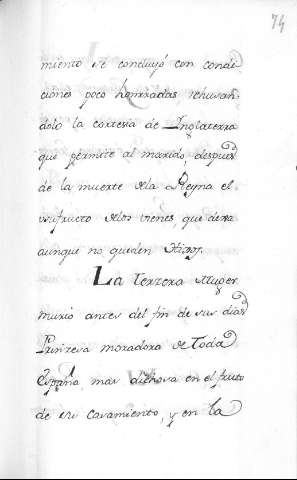 74
miento se concluyó con condi
ciones poco honrradas rehusan
dolo la cortesia de Inglaterra
que permite al marido, despues
de la muerte dela Reyna el
usufructo delos vienes, que dexa
aunque no queden Hixos.
La terzera Muger
murio antes del fin de sus dias
Prinzesa moradora de toda
España, mas dichosa en el fruto
de su casamiento, y en la